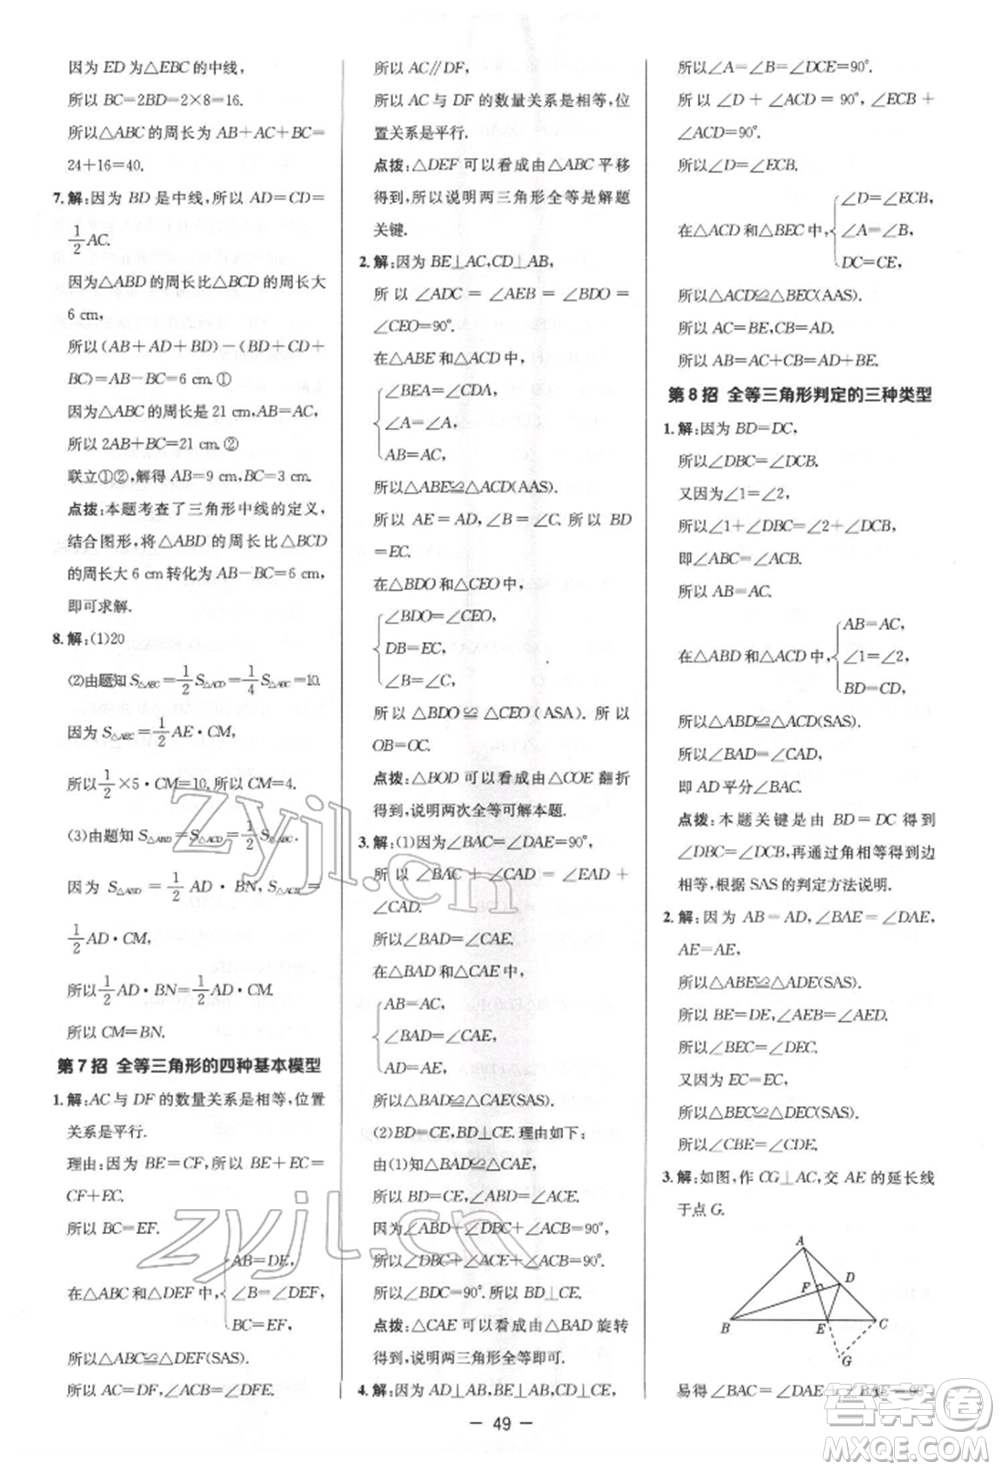 因为 ED 为△EBC 的中线,
所以 BC=2BD=2×8=16.
所以△ABC 的周长为 AB+AC+BC=
24+16=40.
7. 解:因为 BD 是中线,所以 AD=CD=
1/2 AC.
因为△ABD 的周长比△BCD 的周长大
6 cm,
所以(AB+AD+BD)-(BD+CD+
BC)=AB-BC=6 cm.①
因为△ABC 的周长是 21 cm,AB=AC,
所以 2AB+BC=21 cm.②
联立①②,解得 AB=9 cm,BC=3 cm.
点拨:本题考查了三角形中线的定义,
结合图形,将△ABD 的周长比△BCD
的周长大 6 cm 转化为 AB-BC=6 cm,
即可求解.
8. 解:(1)20
(2)由题知 S△AEC=1/2 S△ACD=1/4 S△ABC=10.
因为 S△AEC=1/2 AE·CM,
所以 1/2×5·CM=10,所以 CM=4.
(3)由题知 S△ABD=S△ACD=1/2 S△ABC.
因为 S△ABD=1/2 AD·BN,S△ACD=
1/2 AD·CM,
所以 1/2 AD·BN=1/2 AD·CM.
所以 CM=BN.
第 7 招 全等三角形的四种基本模型
1. 解:AC 与 DF 的数量关系是相等,位置
关系是平行.
理由:因为 BE=CF,所以 BE+EC=
CF+EC.
所以 BC=EF.
在△ABC 和△DEF 中, { AB=DE,
∠B=∠DEF,
BC=EF,
所以△ABC≌△DEF(SAS).
所以 AC=DF,∠ACB=∠DFE.
所以 AC∥DF,
所以 AC 与 DF 的数量关系是相等,位
置关系是平行.
点拨:△DEF 可以看成由△ABC 平移
得到,所以说明两三角形全等是解题
关键.
2. 解:因为 BE⊥AC,CD⊥AB,
所以∠ADC=∠AEB=∠BDO=
∠CEO=90°.
在△ABE 和△ACD 中,
{ ∠BEA=∠CDA,
∠A=∠A,
AB=AC,
所以△ABE≌△ACD(AAS).
所以 AE=AD,∠B=∠C.所以 BD
=EC.
在△BDO 和△CEO 中,
{ ∠BDO=∠CEO,
DB=EC,
∠B=∠C,
所以△BDO≌△CEO(ASA).所以
OB=OC.
点拨:△BOD 可以看成由△COE 翻折
得到,说明两次全等可解本题.
3. 解:(1)因为∠BAC=∠DAE=90°,
所以∠BAC+∠CAD=∠DAE+
∠CAD.
所以∠BAD=∠CAE.
在△BAD 和△CAE 中,
{ AB=AC,
∠BAD=∠CAE,
AD=AE,
所以△BAD≌△CAE(SAS).
(2)BD=CE,BD⊥CE.理由如下:
由(1)知△BAD≌△CAE,
所以 BD=CE,∠ABD=∠ACE.
因为∠ABD+∠DBC+∠ACB=90°,
所以∠DBC+∠ACE+∠ACB=90°.
所以∠BDC=90°.所以 BD⊥CE.
点拨:△CAE 可以看成由△BAD 旋转
得到,说明两三角形全等即可.
4. 解:因为 AD⊥AB,BE⊥AB,CD⊥CE,
所以∠A=∠B=∠DCE=90°.
所以∠D+∠ACD=90°,∠ECB+
∠ACD=90°.
所以∠D=∠ECB.
在△ACD 和△BEC 中, { ∠D=∠ECB,
∠A=∠B,
DC=CE,
所以△ACD≌△BEC(AAS).
所以 AC=BE,CB=AD.
所以 AB=AC+CB=AD+BE.
第 8 招 全等三角形判定的三种类型
1. 解:因为 BD=DC,
所以∠DBC=∠DCB.
又因为∠1=∠2,
所以∠1+∠DBC=∠2+∠DCB,
即∠ABC=∠ACB.
所以 AB=AC.
在△ABD 和△ACD 中, { AB=AC,
∠1=∠2,
BD=CD,
所以△ABD≌△ACD(SAS).
所以∠BAD=∠CAD,
即 AD 平分∠BAC.
点拨:本题关键是由 BD=DC 得到
∠DBC=∠DCB,再通过角相等和边
相等,根据 SAS 的判定方法说明.
2. 解:因为 AB=AD,∠BAE=∠DAE,
AE=AE,
所以△ABE≌△ADE(SAS).
所以 BE=DE,∠AEB=∠AED.
所以∠BEC=∠DEC.
又因为 EC=EC,
所以△BEC≌△DEC(SAS).
所以∠CBE=∠CDE.
3. 解:如图,作 CG⊥AC,交 AE 的延长线
于点 G.
A
F
D
B
E
C
G
易得∠BAC=∠ACG=∠AFB=90°
— 49 —
zyjl.cn
zyjl.cn
答案圈
MXQE.COM